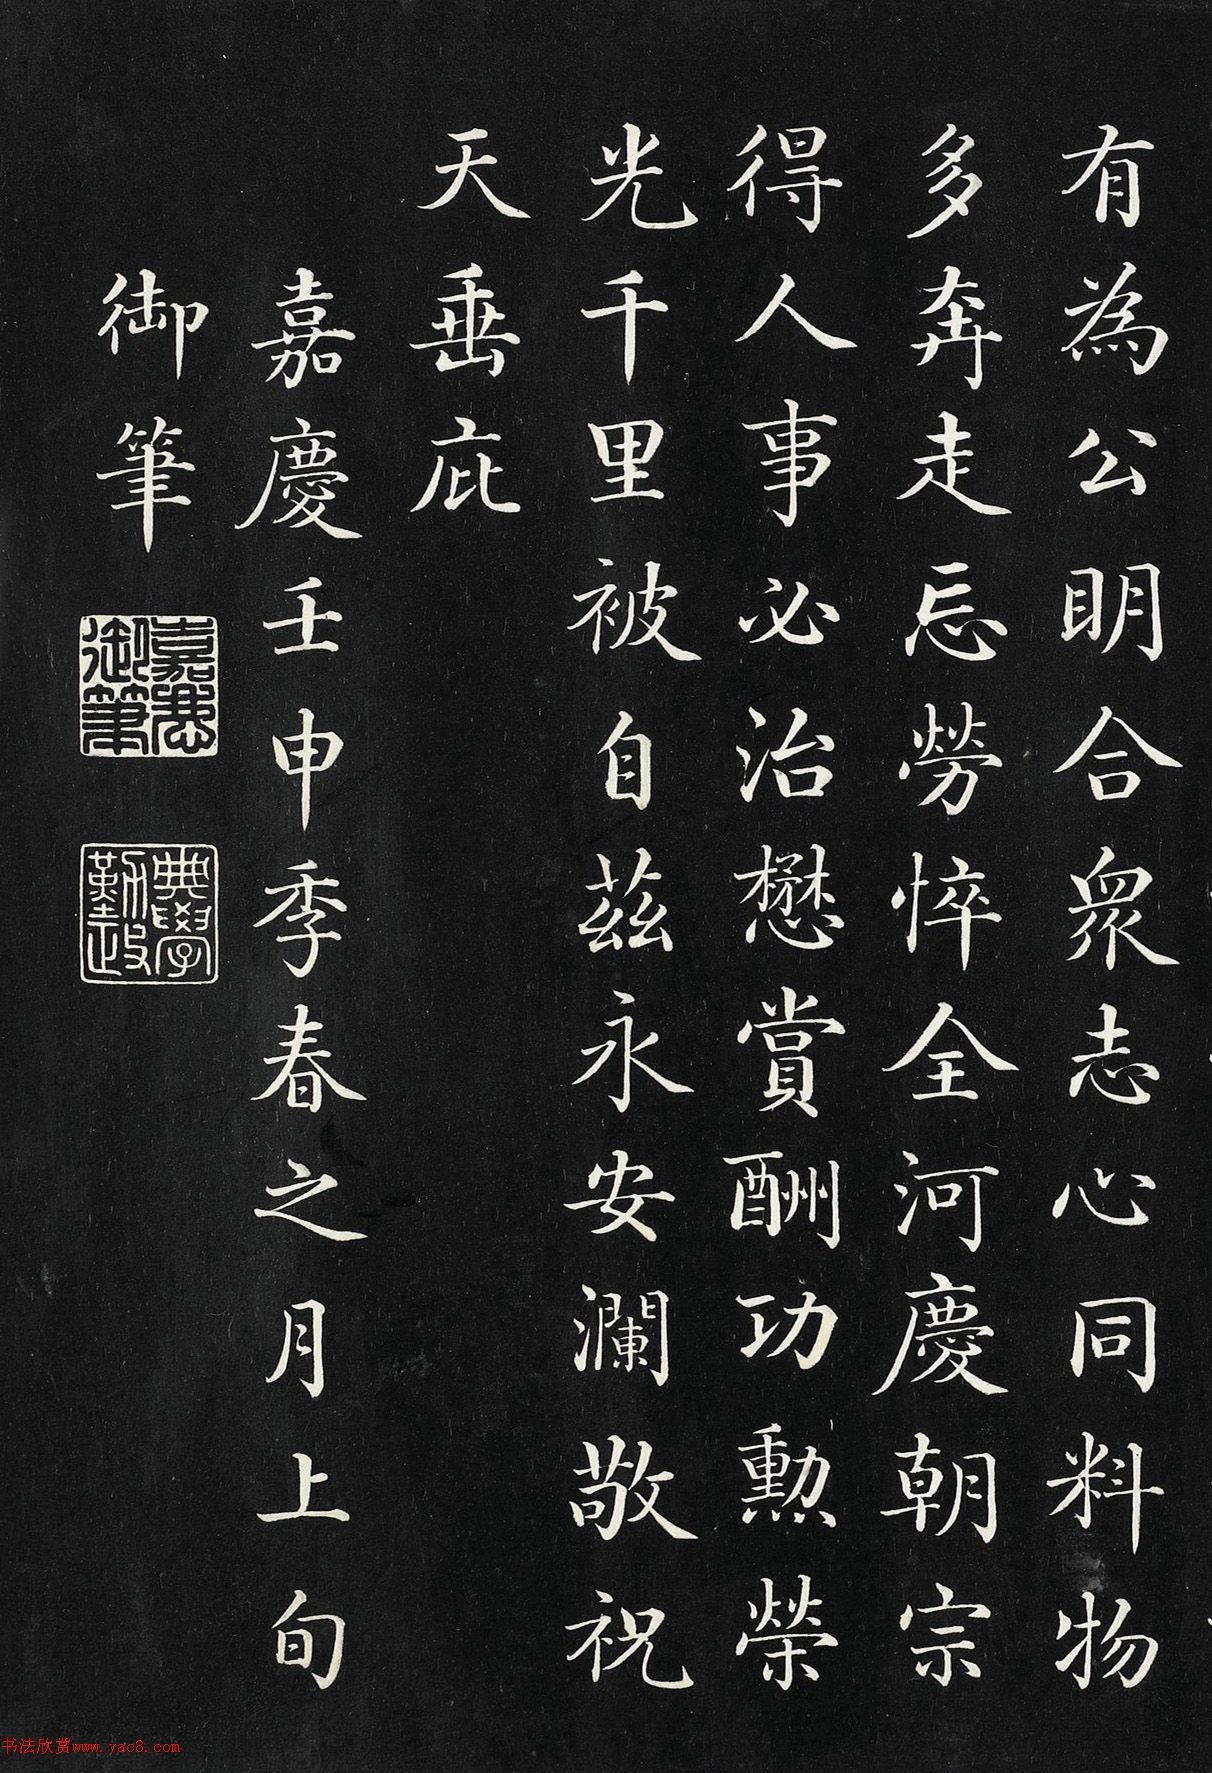 有為公明合衆志心同料物
多奔走忘勞悴全河慶朝宗
得人事必治懋賞酬功勲榮
光千里被自茲永安瀾敬祝
天垂庇
嘉慶壬申季春之月上旬
御筆
嘉慶
御筆
典學
勤政
书法欣赏www.yac8.com